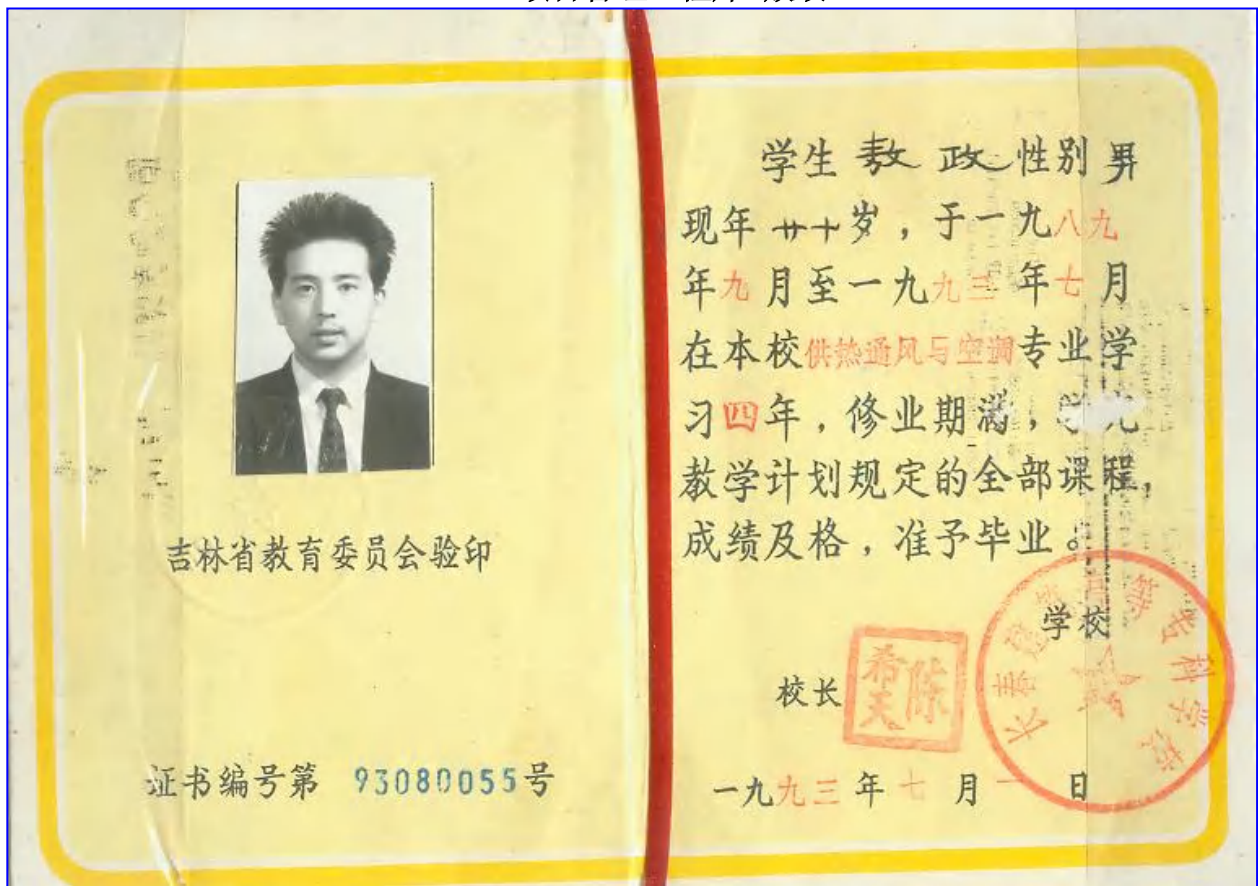 吉林省教育委员会验印
证书编号第 93080055号
学生 敖 政 性别 男
现年 廿十岁，于一九八九
年九月至一九九三年七月
在本校供热通风与空调专业学
习四年，修业期满，学完
教学计划规定的全部课程，
成绩及格，准予毕业。
学校
长春建筑高等专科学校
校长
陈希天
一九九三年七月一日